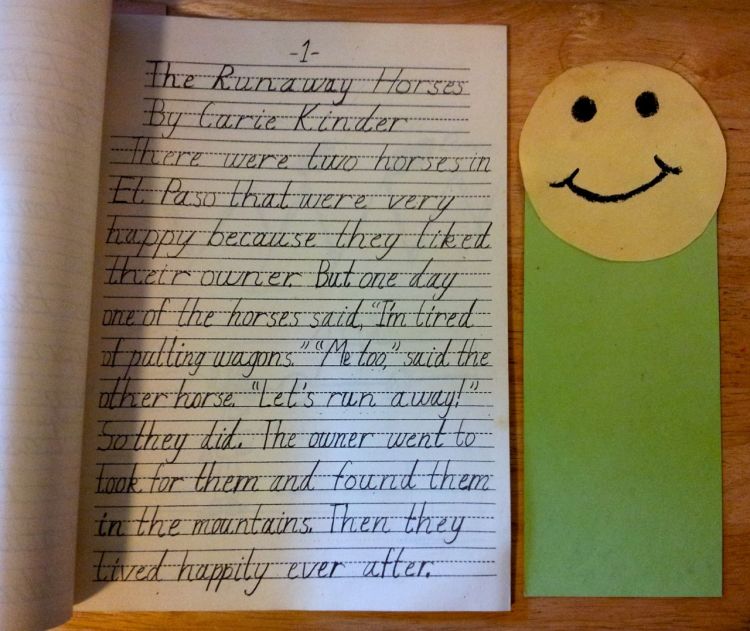 -1-
The Runaway Horses
By Carie Kinder
There were two horses in
El Paso that were very
happy because they liked
their owner. But one day
one of the horses said, "I'm tired
of pulling wagons." "Me too," said the
other horse. "Let's run away!"
So they did. The owner went to
look for them and found them
in the mountains. Then they
lived happily ever after.